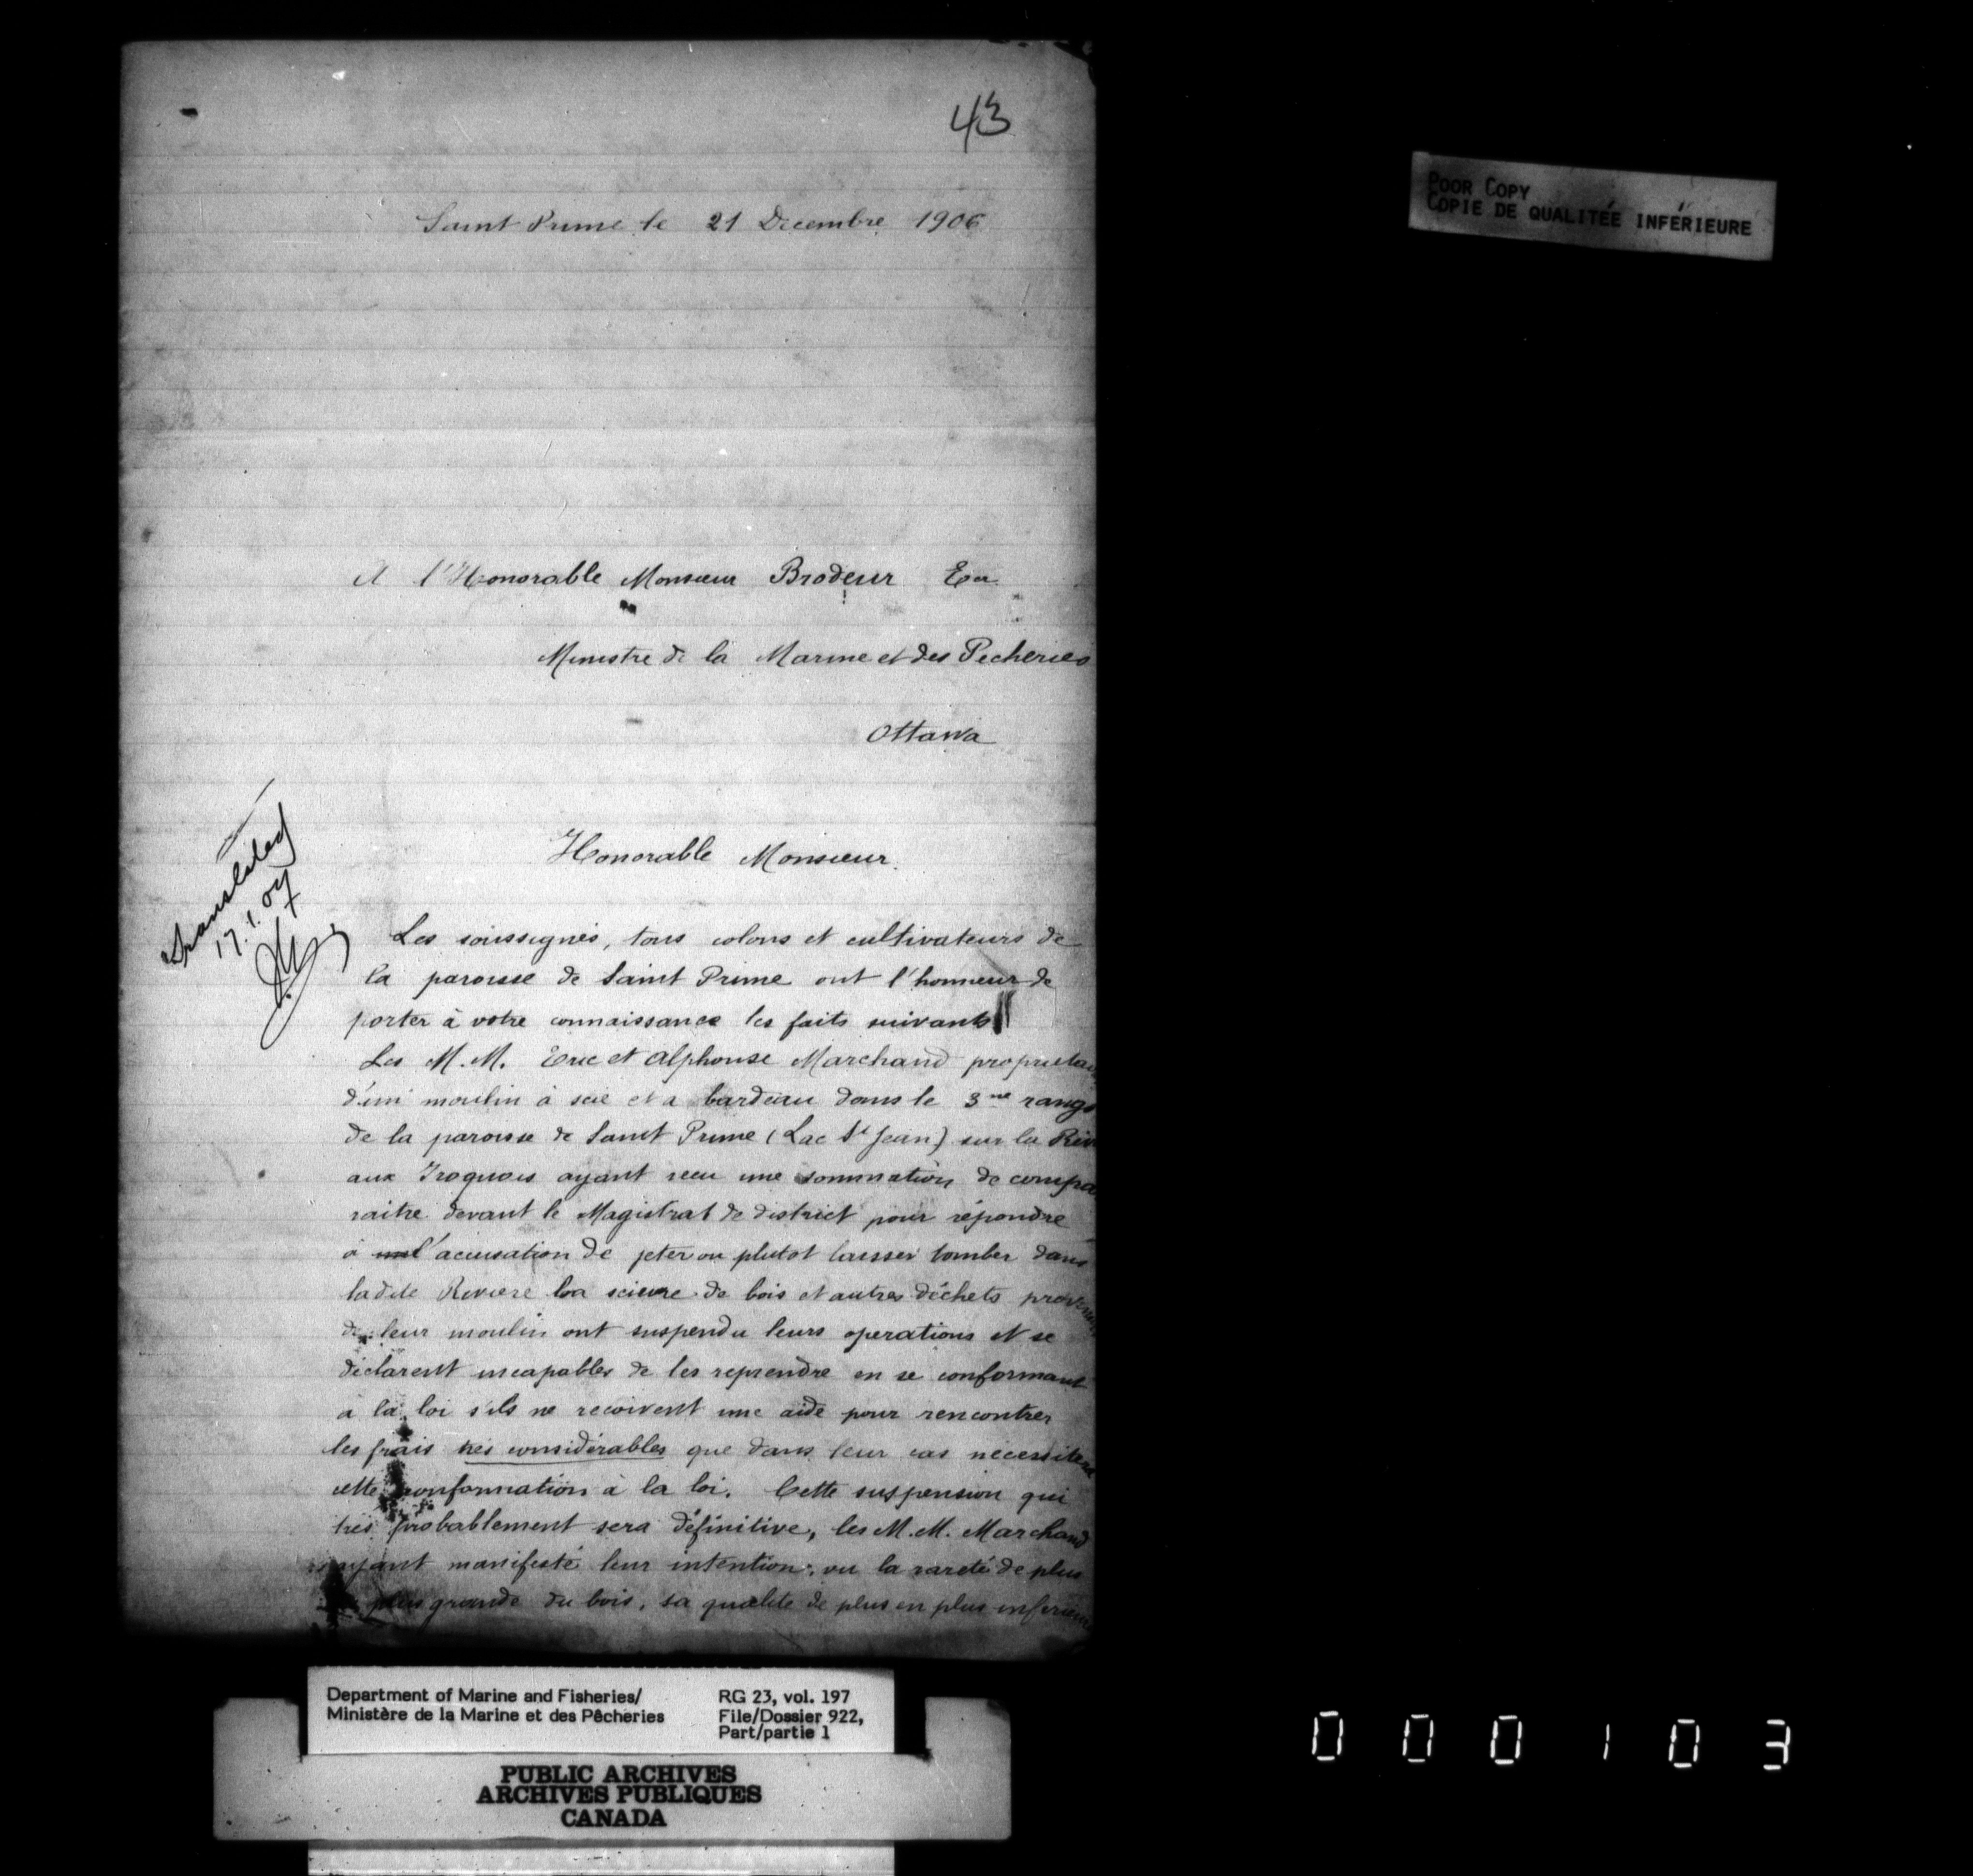 43
Saint Prime le 21 Decembre 1906
POOR COPY
COPIE DE QUALITÉE INFÉRIEURE
A l'Honorable Monsieur Brodeur
Ministre de la Marine et des Pecheries
Ottawa
Honorable Monsieur.
translated
17.1.07
Les soussignés, tous colons et cultivateurs de
la paroisse de Saint Prime ont l'honneur de
porter à votre connaissance les faits suivants
Les M.M. Eric et Alphonse Marchand proprietai
d'un moulin à scie et a bardeau dans le 3me rang
de la paroisse de Saint Prime (Lac St Jean) sur la Riv
aux Iroquois ayant recu une sommation de compa
raitre devant le Magistrat de district pour répondre
à l'accusation de jeter ou plutot laisser tomber dans
ladite Riviere la sciure de bois et autres déchets proven
de leur moulin ont suspendu leurs operations et se
déclarent incapables de les reprendre en se conformant
a la loi s'ils ne recoivent une aide pour rencontrer
les frais très considérables que dans leur cas necessitera
cette conformation à la loi. Cette suspension qui
très probablement sera définitive, les M.M. Marchand
ayant manifesté leur intention, vu la rareté de plus
plus grande du bois, sa qualite de plus en plus inferieure
Department of Marine and Fisheries/
Ministère de la Marine et des Pêcheries
RG 23, vol. 197
File/Dossier 922,
Part/partie 1
PUBLIC ARCHIVES
ARCHIVES PUBLIQUES
CANADA
000103